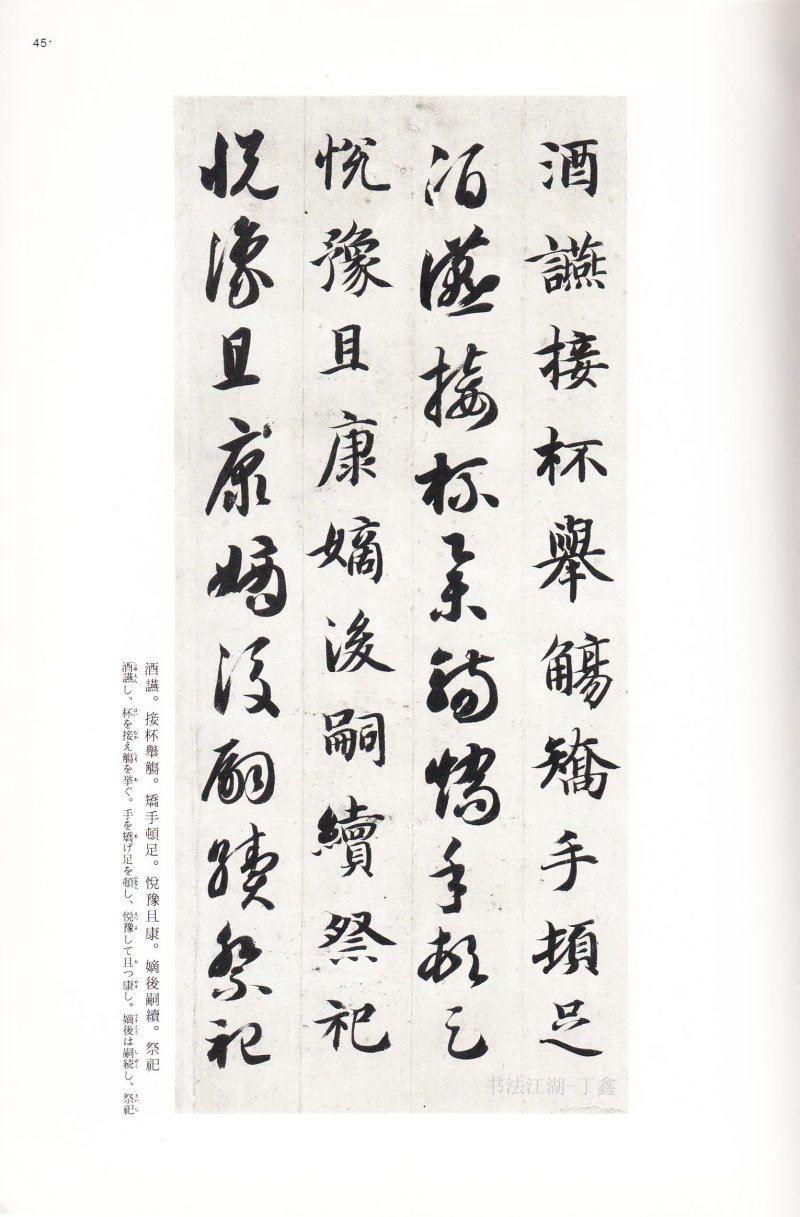 45
酒讌接杯舉觴矯手頓足
酒讌接杯舉觴矯手頓足
悅豫且康嫡後嗣續祭祀
悅豫且康嫡後嗣續祭祀
酒讌。接杯舉觴。矯手頓足。悅豫且康。嫡後嗣續。祭祀
酒讌し、杯を接え觴を挙ぐ。手を矯げ足を頓し、悅豫して且つ康し。嫡後は嗣続し、祭祀
书法江湖-丁鑫